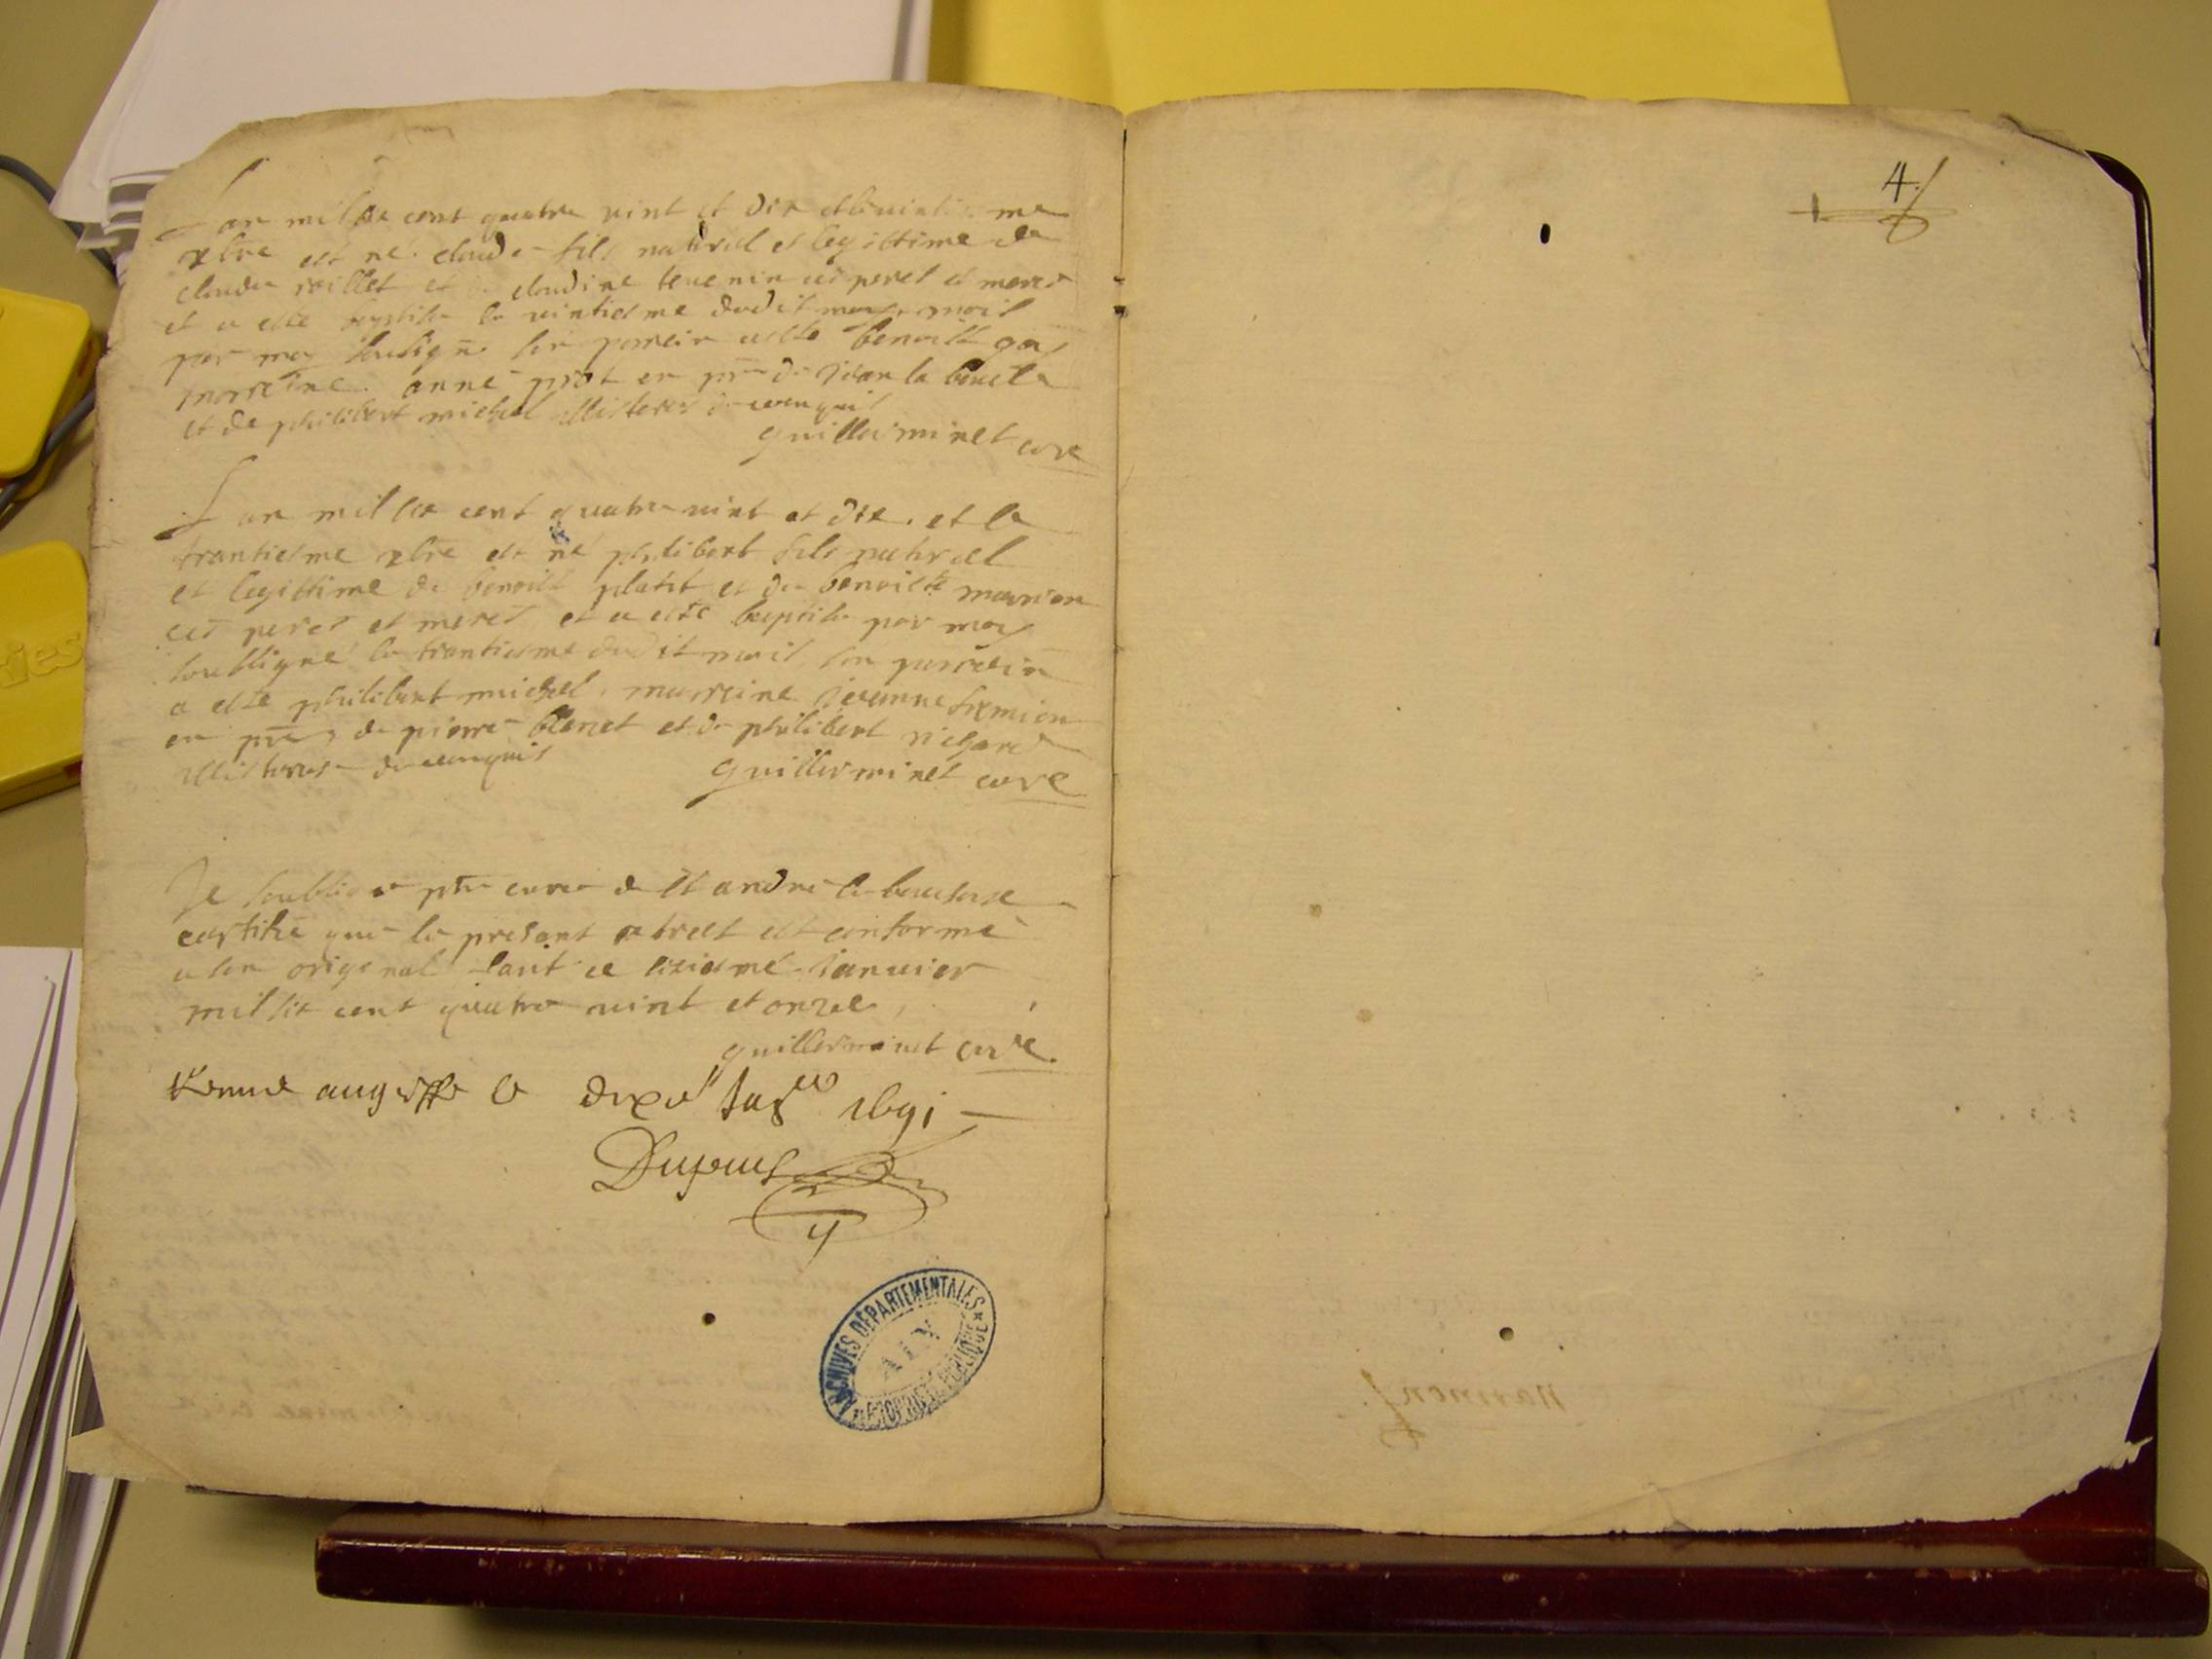 Lan mil six cent quatre vint et dix et le vintiesme
xbre est né claude fils naturel et legittime de
claude et de claudine tevenin ces peres et meres
et a esté baptisé le vintiesme dudit mois
par moy soubsigné son parrein a esté benoist
marreine anne prost en pnce de jean la boucle
et de philibert michel
guillerminet curé
Lan mil six cent quatre vint et dix et le
trantiesme xbre est né philibert fils naturel
et legittime de benoist platit et de benoiste
ces peres et meres et a esté baptisé par moy
soubsigné le trantiesme dudit mois son parrein
a esté philibert michel marreine jeanne
en pnce de pierre et de philibert richard
guillerminet curé
Je soubsigné ptre curé de st andré le bouchoux
certifie que le present extrect est conforme
a son original fait ce siziesme janvier
mil six cent quatre vint et onze
guillerminet curé
Remis au greffe le janer 1691
Dupuis
ARCHIVES DÉPARTEMENTALES
AIN
PROPRIÉTÉ PUBLIQUE
4
ries